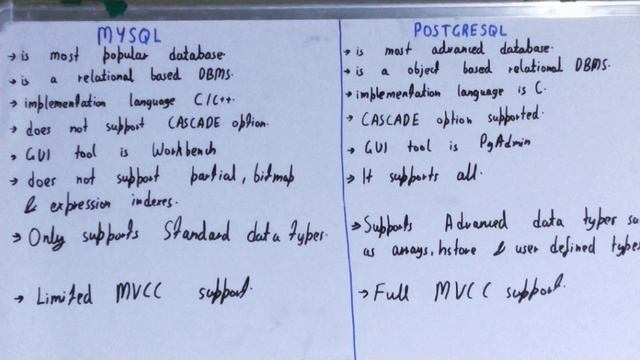 MYSQL
→ is most popular database.
→ is a relational based DBMS.
→ implementation language C/C++.
→ does not support CASCADE option.
→ GUI tool is Workbench
→ does not support partial, bitmap
& expression indexes.
→ Only supports Standard data types.
→ Limited MVCC support.
POSTGRESQL
→ is most advanced database.
→ is a object based relational DBMS.
→ implementation language is C.
→ CASCADE option supported.
→ GUI tool is PgAdmin
→ It supports all.
→ Supports Advanced data types
as arrays, hstore & user defined types
→ Full MVCC support.